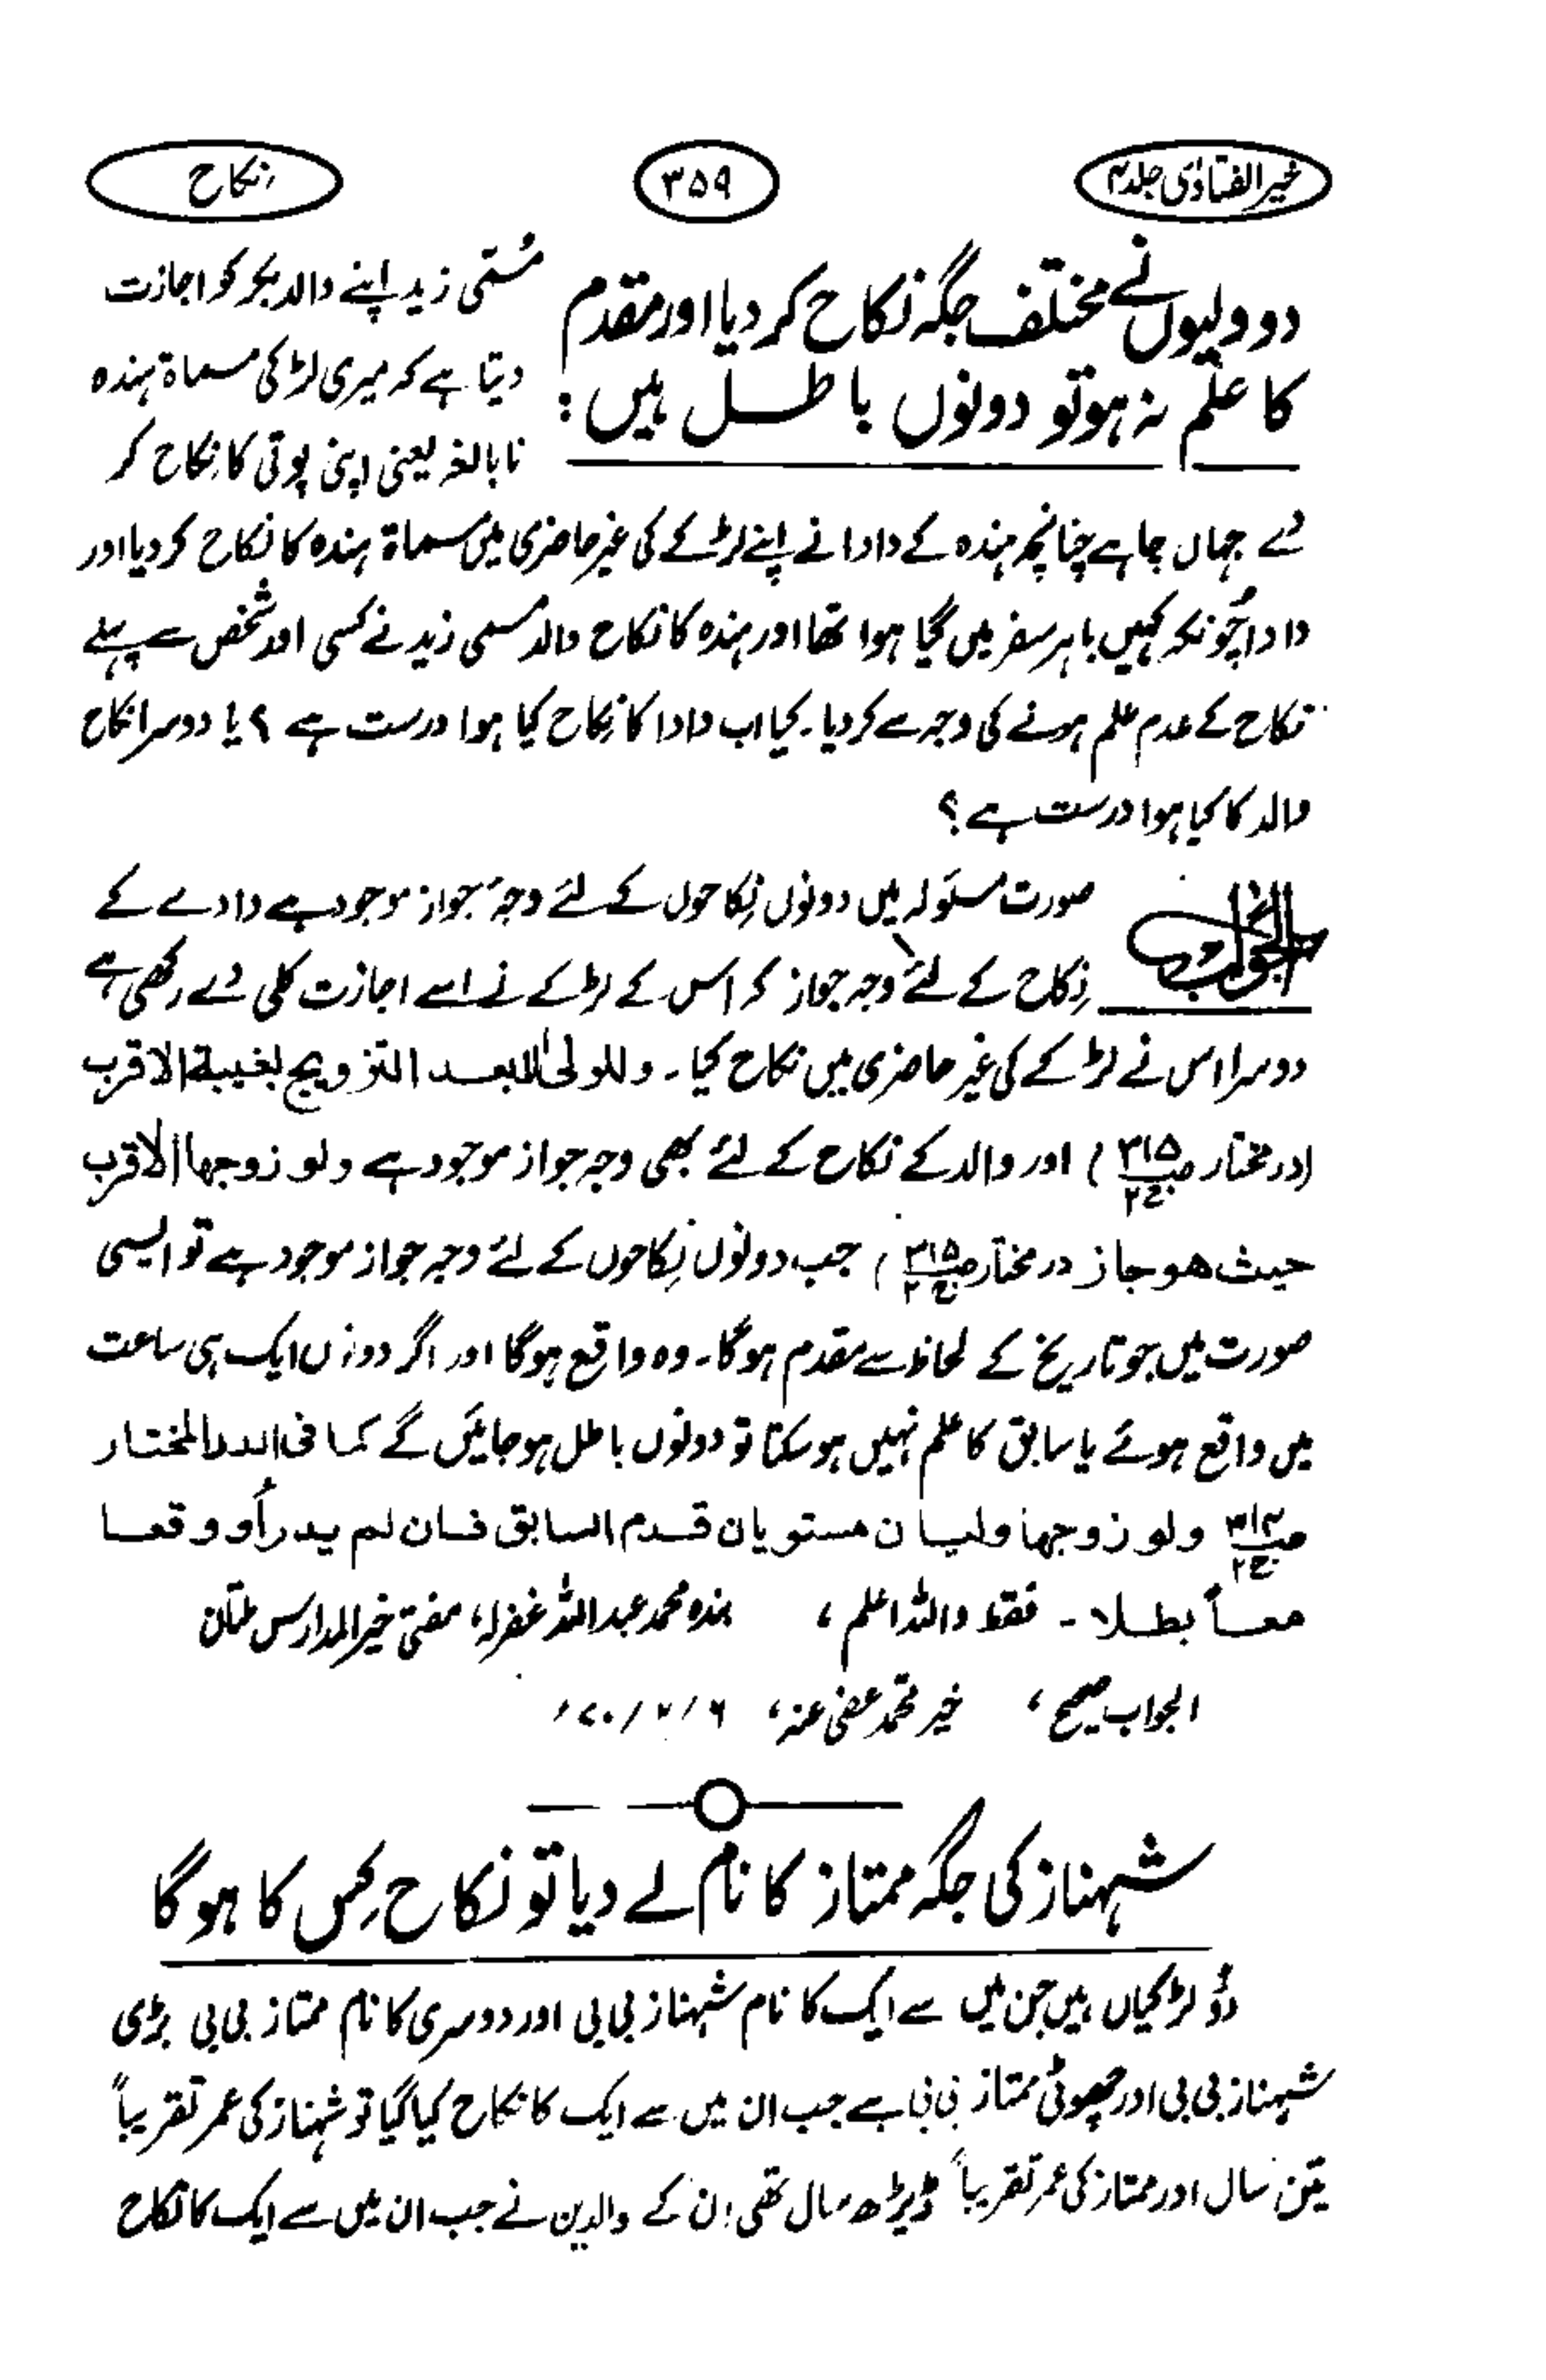 خیر الفتاویٰ جلد ۴
۳۵۹
نکاح
دو ولیوں نے مختلف جگہ نکاح کر دیا اور مقدم
کا علم نہ ہو تو دونوں باطل ہیں :
مسمّی زید اپنے والد بکر کو اجازت
دیتا ہے کہ میری لڑکی مسماۃ ہندہ
نابالغہ یعنی اپنی پوتی کا نکاح کر
دے جہاں چاہے چنانچہ ہندہ کے دادا نے اپنے لڑکے کی غیر حاضری میں مسماۃ ہندہ کا نکاح کر دیا اور
دادا چونکہ کہیں باہر سفر میں گیا ہوا تھا اور ہندہ کا نکاح والد مسمی زید نے کسی اور شخص سے پہلے
نکاح کے عدم علم ہونے کی وجہ سے کر دیا۔ کیا اب دادا کا نکاح کیا ہوا درست ہے ؟ یا دوسرا نکاح
والد کا کیا ہوا درست ہے ؟
الجواب
صورت مسئولہ میں دونوں نکاحوں کے لئے وجۂ جواز موجود ہے دادے کے
نکاح کے لئے وجہ جواز کہ اس کے لڑکے نے اسے اجازت کلی دے رکھی ہے
دوسرا اس نے لڑکے کی غیر حاضری میں نکاح کیا۔ وللولی الابعد التزویج بغیبۃ الاقرب
(در مختار ص۳۱۵ ج۲) اور والد کے نکاح کے لئے بھی وجہ جواز موجود ہے ولو زوجھا الاقرب
حیث ھو جاز در مختار ص۳۱۵ ج۲) جب دونوں نکاحوں کے لئے وجہ جواز موجود ہے تو ایسی
صورت میں جو تاریخ کے لحاظ سے مقدم ہوگا۔ وہ واقع ہوگا اور اگر دونوں ایک ہی ساعت
میں واقع ہوئے یا سابق کا علم نہیں ہو سکتا تو دونوں باطل ہو جائیں گے کما فی الدر المختار
ص۳۱۲ ج۲ ولو زوجھا ولیان مستویان قدم السابق فان لم یدر أو وقعا
معاً بطلا۔ فقط واللہ اعلم ، بندہ محمد عبد اللہ غفرلہ، مفتی خیر المدارس ملتان
الجواب صحیح ، خیر محمد عفی عنہ،
شہناز کی جگہ ممتاز کا نام لے دیا تو نکاح کس کا ہوگا
دو لڑکیاں ہیں جن میں سے ایک کا نام شہناز بی بی اور دوسری کا نام ممتاز بی بی بڑی
شہناز بی بی اور چھوٹی ممتاز بی بی ہے جب ان میں سے ایک کا نکاح کیا گیا تو شہناز کی عمر تقریباً
تین سال اور ممتاز کی عمر تقریباً ڈیڑھ سال تھی ان کے والدین نے جب ان میں سے ایک کا نکاح